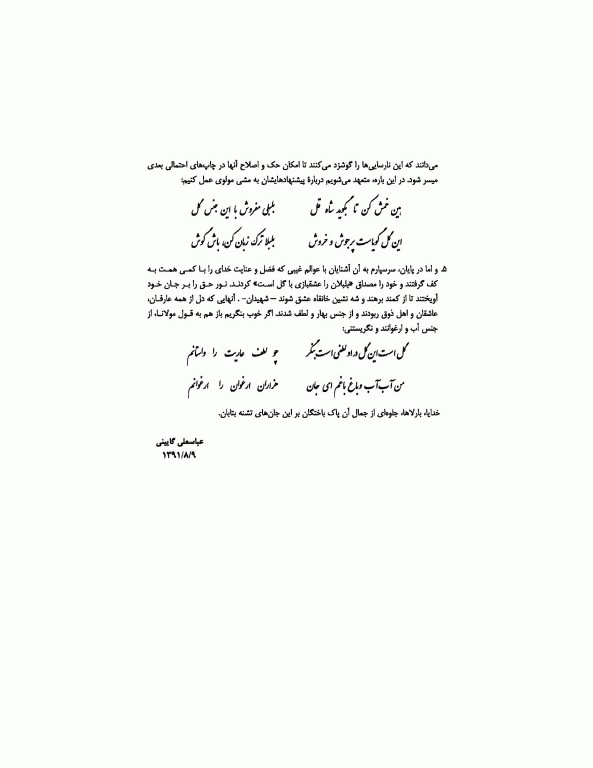 می‌دانند که این نارسایی‌ها را گوشزد می‌کنند تا امکان حک و اصلاح آنها در چاپ‌های احتمالی بعدی
میسر شود. در این باره، متعهد می‌شویم دربارهٔ پیشنهادهایشان به مشی مولوی عمل کنیم:
هین خمش کن تا بگوید شاه قل بلبلی مفروش با این جنس گل
این گل گویاست پرجوش و خروش بلبلا ترک زبان کن، باش گوش
۵. و اما در پایان، سرسپارم به آن آشنایان با عوالم غیبی که فضل و عنایت خدای را با کمی همت به
کف گرفتند و خود را مصداق «بلبلان را عشقبازی با گل است» کردند. نور حق را بر جان خود
آویختند تا از کمند برهند و شه نشین خانقاه عشق شوند – شهیدان– . آنهایی که دل از همه عارفان،
عاشقان و اهل ذوق ربودند و از جنس بهار و لطف شدند. اگر خوب بنگریم باز هم به قول مولانا، از
جنس آب و ارغوانند و نگریستنی:
گل است این گل در او لطفی است بنگر چو لطف عاریت را واستانم
من آب آب و باغ باغم ای جان هزاران ارغوان را ارغوانم
خدایا، بارلاها، جلوه‌ای از جمال آن پاک باختگان بر این جان‌های تشنه بتابان.
عباسعلی گایینی
۱۳۹۱/۸/۹